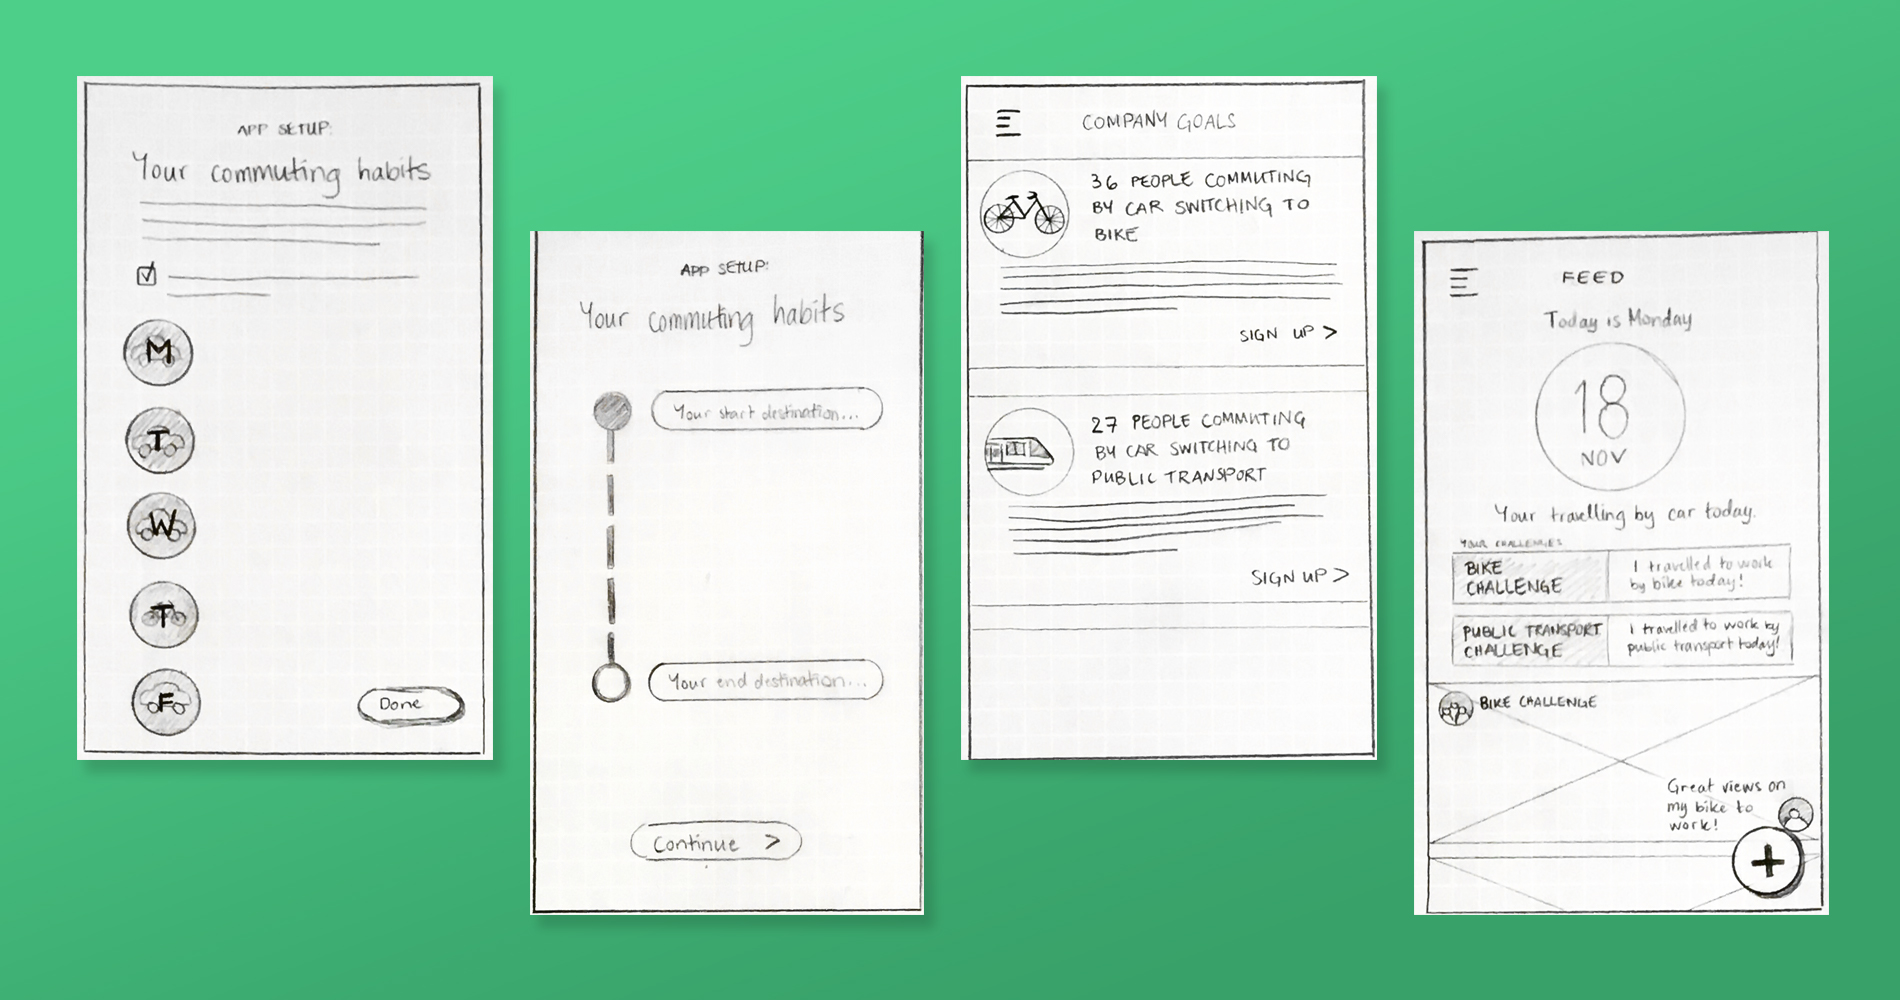 APP SETUP:
Your commuting habits
M
T
W
T
F
Done
APP SETUP:
Your commuting habits
Your start destination...
Your end destination...
Continue >
COMPANY GOALS
36 PEOPLE COMMUTING
BY CAR SWITCHING TO
BIKE
SIGN UP >
27 PEOPLE COMMUTING
BY CAR SWITCHING TO
PUBLIC TRANSPORT
SIGN UP >
FEED
Today is Monday
18
NOV
Your travelling by car today.
YOUR CHALLENGES
BIKE
CHALLENGE
I travelled to work
by bike today!
PUBLIC TRANSPORT
CHALLENGE
I travelled to work by
public transport today!
BIKE CHALLENGE
Great views on
my bike to
work!
+